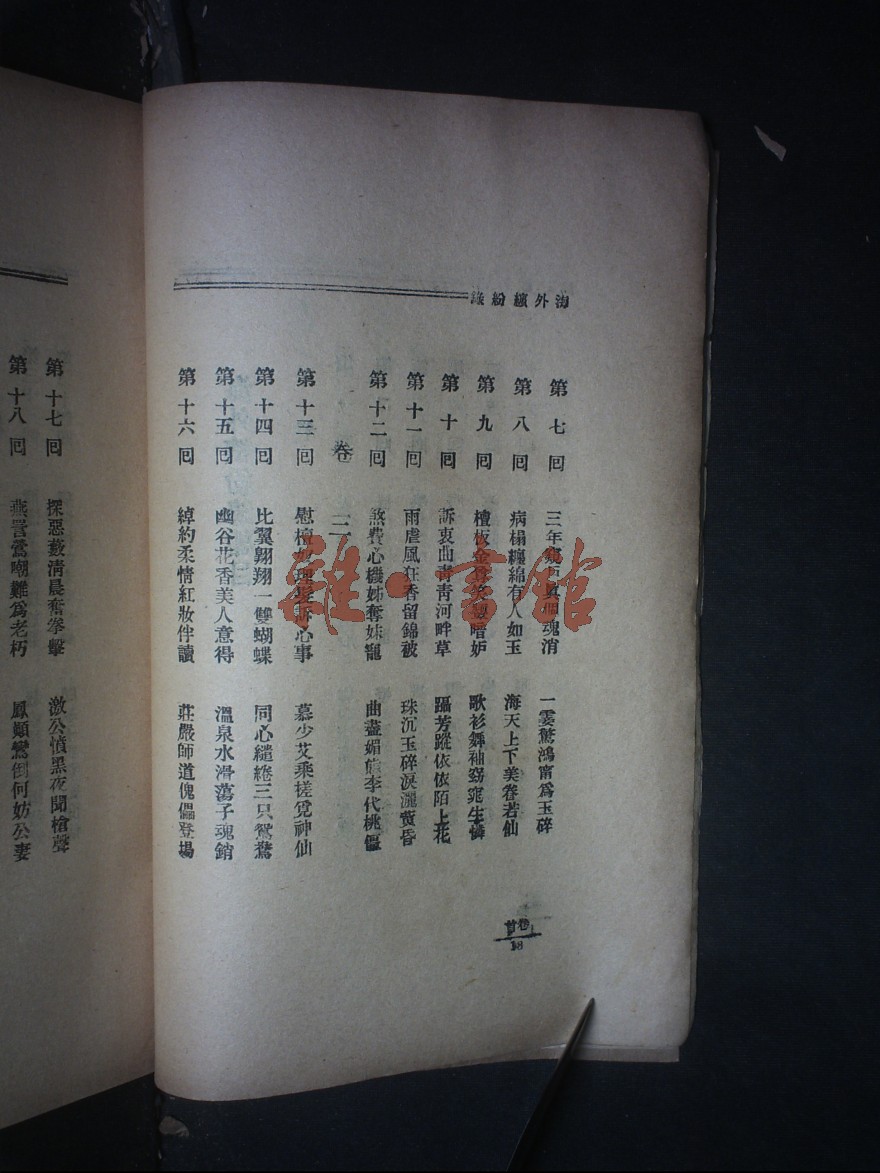 海外繽紛錄
第七回 三年窺 魂消 一霎驚鴻甯為玉碎
第八回 病榻纏綿有人如玉 海天上下美眷若仙
第九回 檀板金 嗜妒 歌衫舞袖窈窕生憐
第十回 訴衷曲青青河畔草 躡芳蹤依依陌上花
第十一回 雨虐風狂香留錦被 珠沉玉碎淚灑黃昏
第十二回 煞費心機姊奪妹寵 曲盡媚 李代桃僵
卷三
第十三回 慰檀 理 訴心事 慕少艾乘槎覓神仙
第十四回 比翼翺翔一雙蝴蝶 同心繾綣三只鴛鴦
第十五回 幽谷花香美人意得 溫泉水滑蕩子魂銷
第十六回 綽約柔情紅妝伴讀 莊嚴師道傀儡登場
卷首
18
第十七回 探惡藪清晨奮拳擊 激公憤黑夜聞槍聲
第十八回 燕詈鶯嘲難為老朽 鳳顛鸞倒何妨公妻
雜·書館